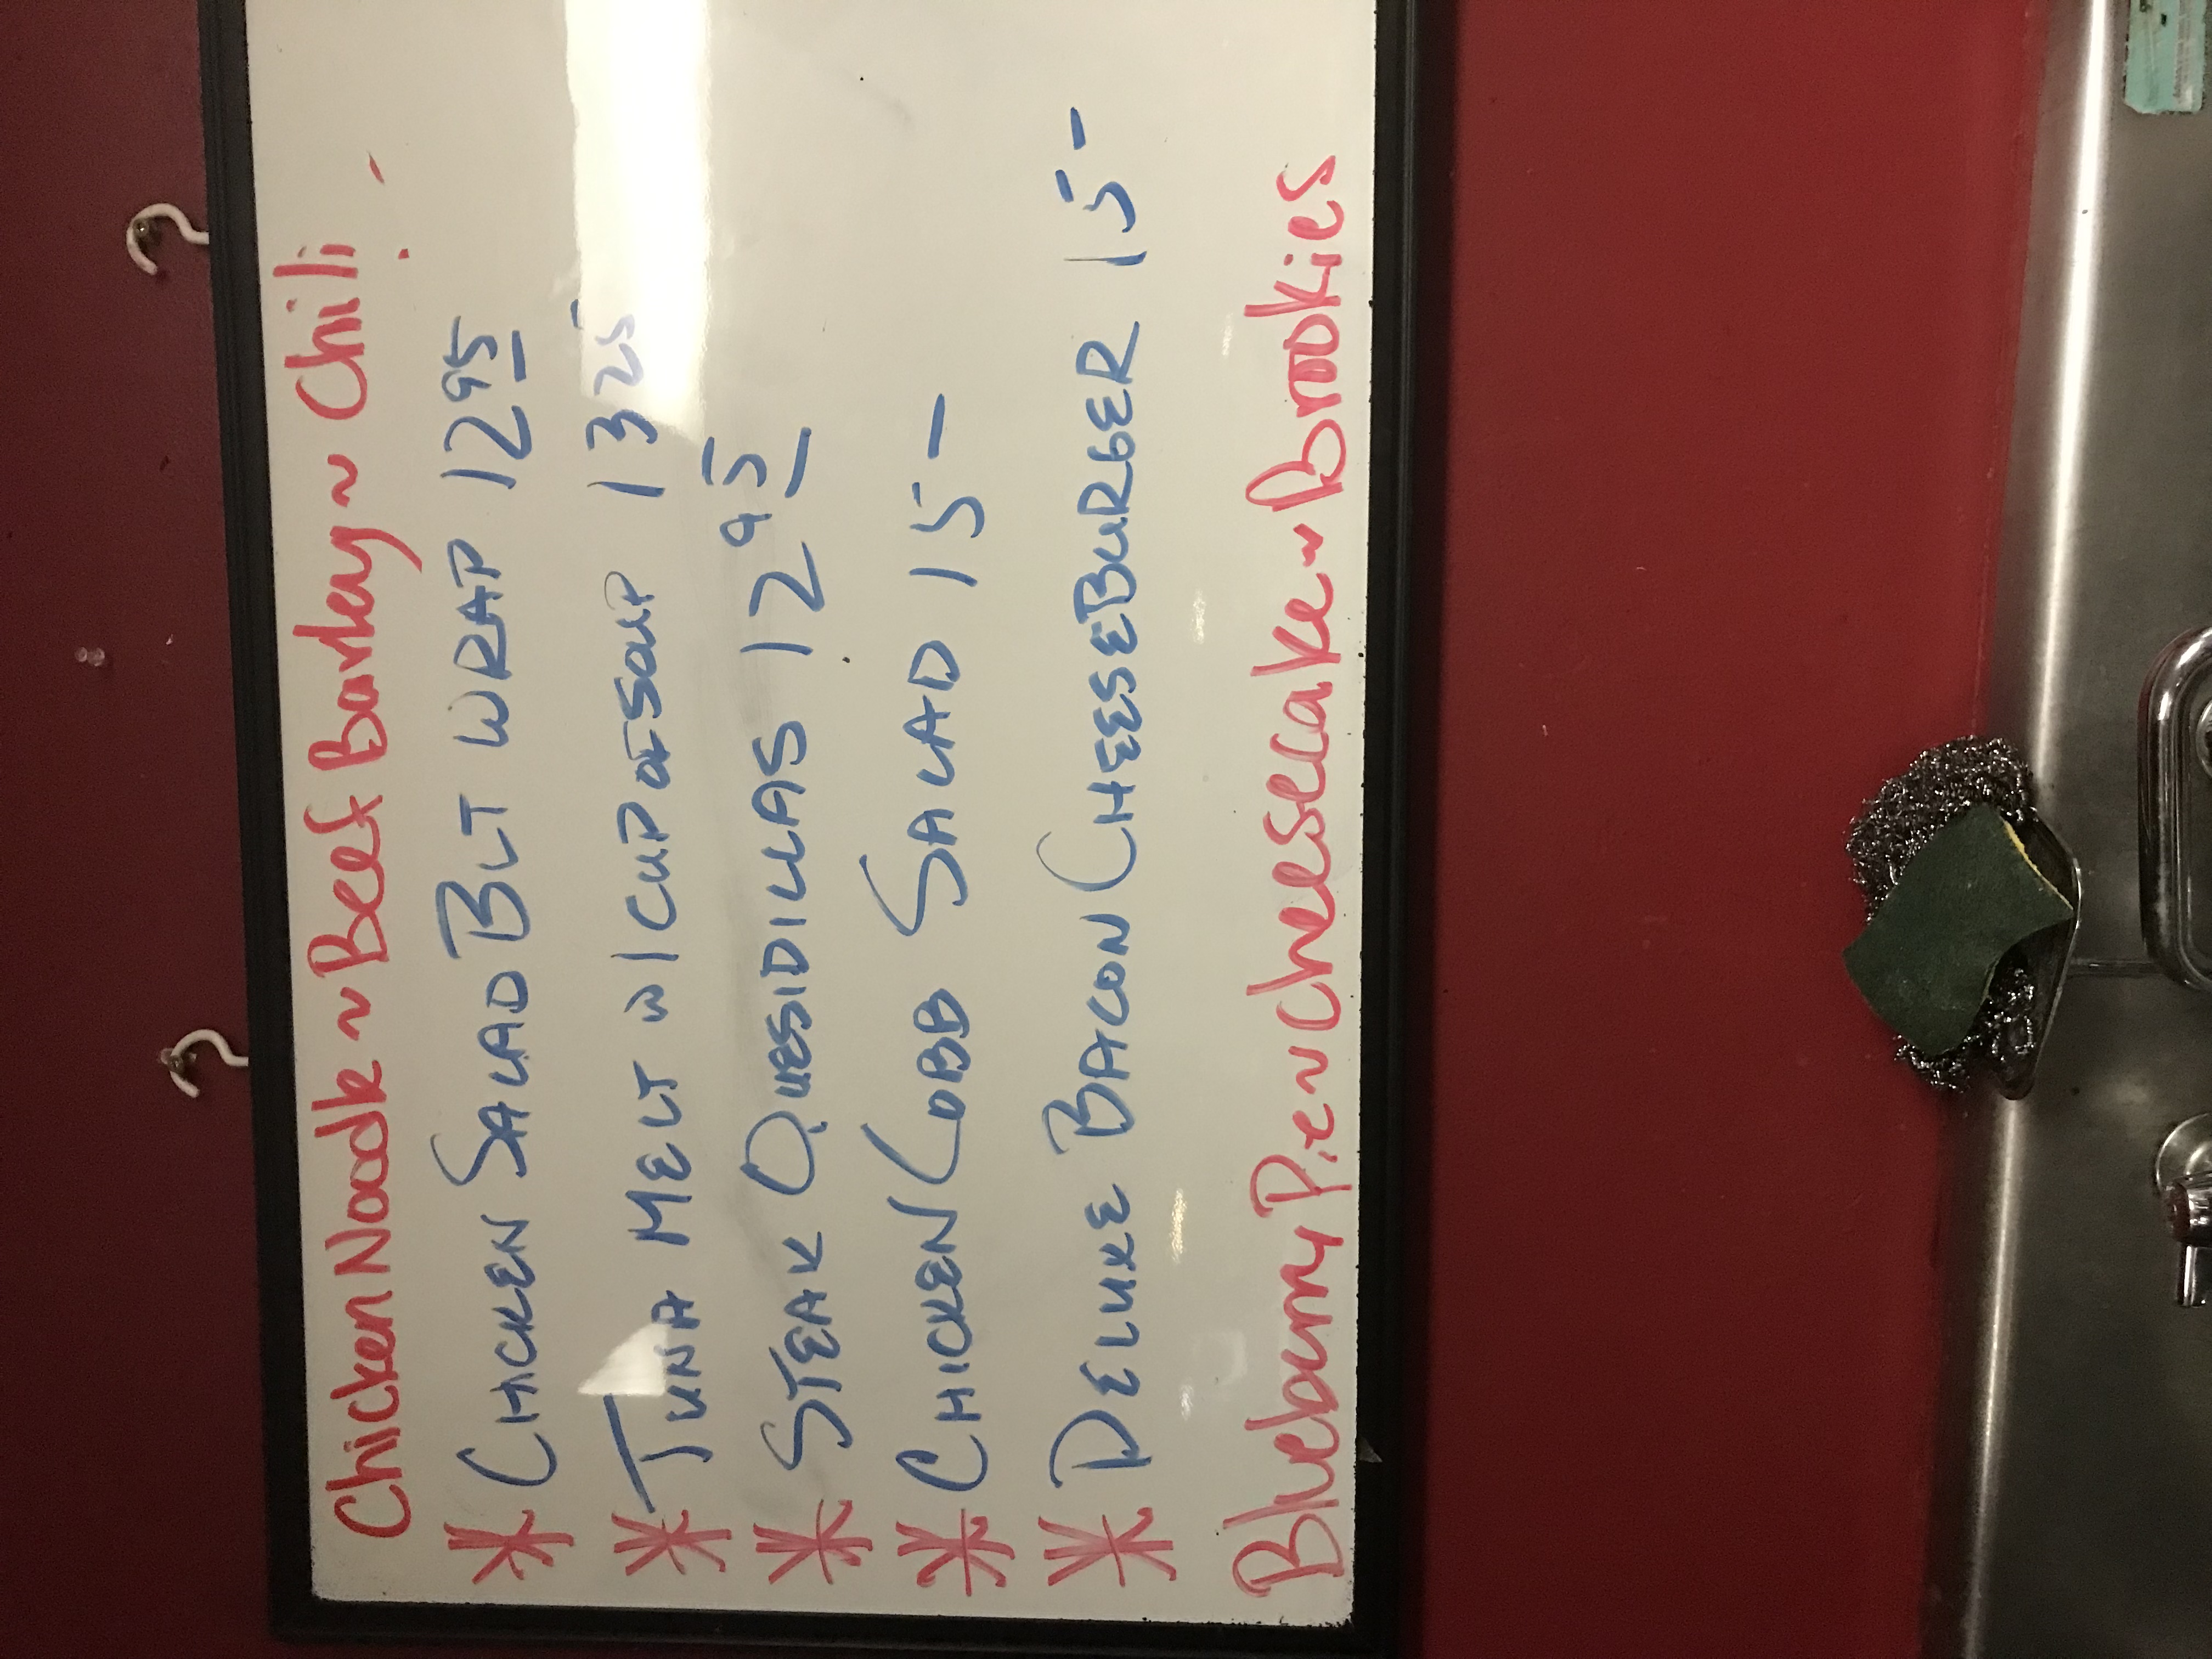 Chicken Noodle ~ Beef Barley ~ Chili
* CHICKEN SALAD BLT WRAP 12 95
* TUNA MELT W/ CUP OF SOUP 13 25
* STEAK QUESIDILLAS 12 95
* CHICKEN COBB SALAD 15 -
* DELUXE BACON CHEESEBURGER 15 -
Blueberry Pie ~ Cheesecake ~ Brookies